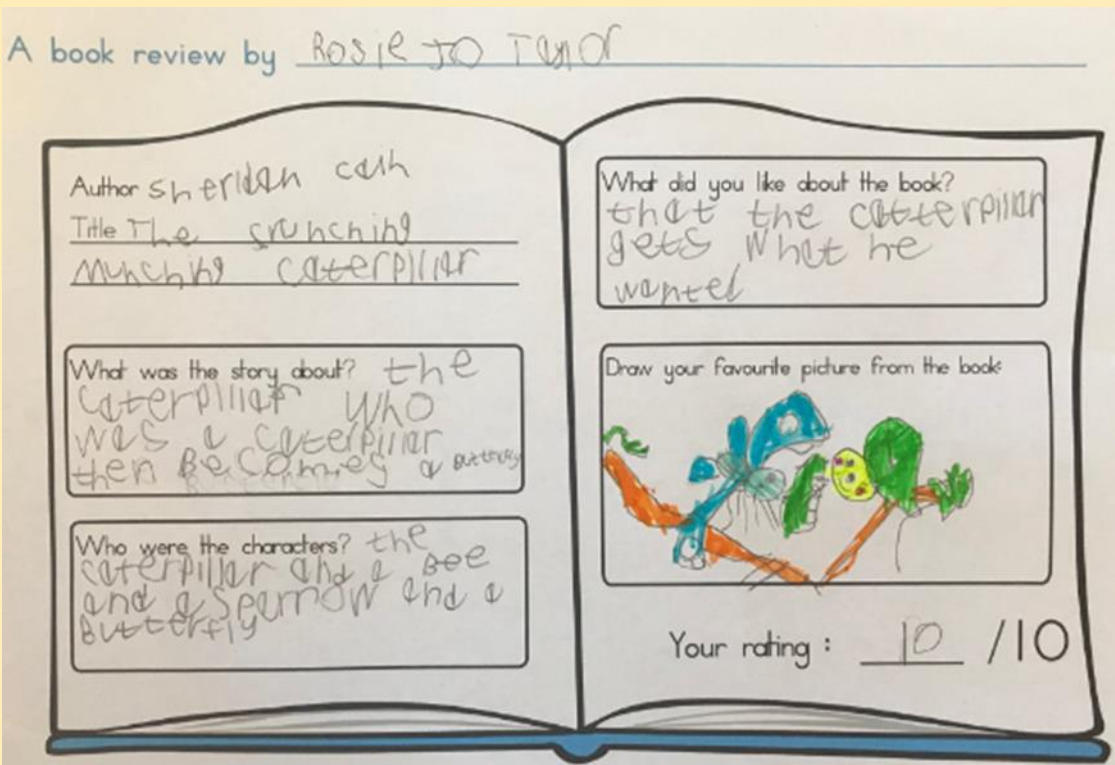 A book review by Rosie Jo Taylor
Author Sheridan cash
Title The crunching
Munching caterpillar
What was the story about? the
caterpillar who
was a caterpillar
then Becomes a Butterfly
Who were the characters? the
caterpillar and a Bee
and a Sparrow and a
Butterfly
What did you like about the book?
that the catterpillar
gets what he
wanted
Draw your favourite picture from the book:
Your rating : 10 /10